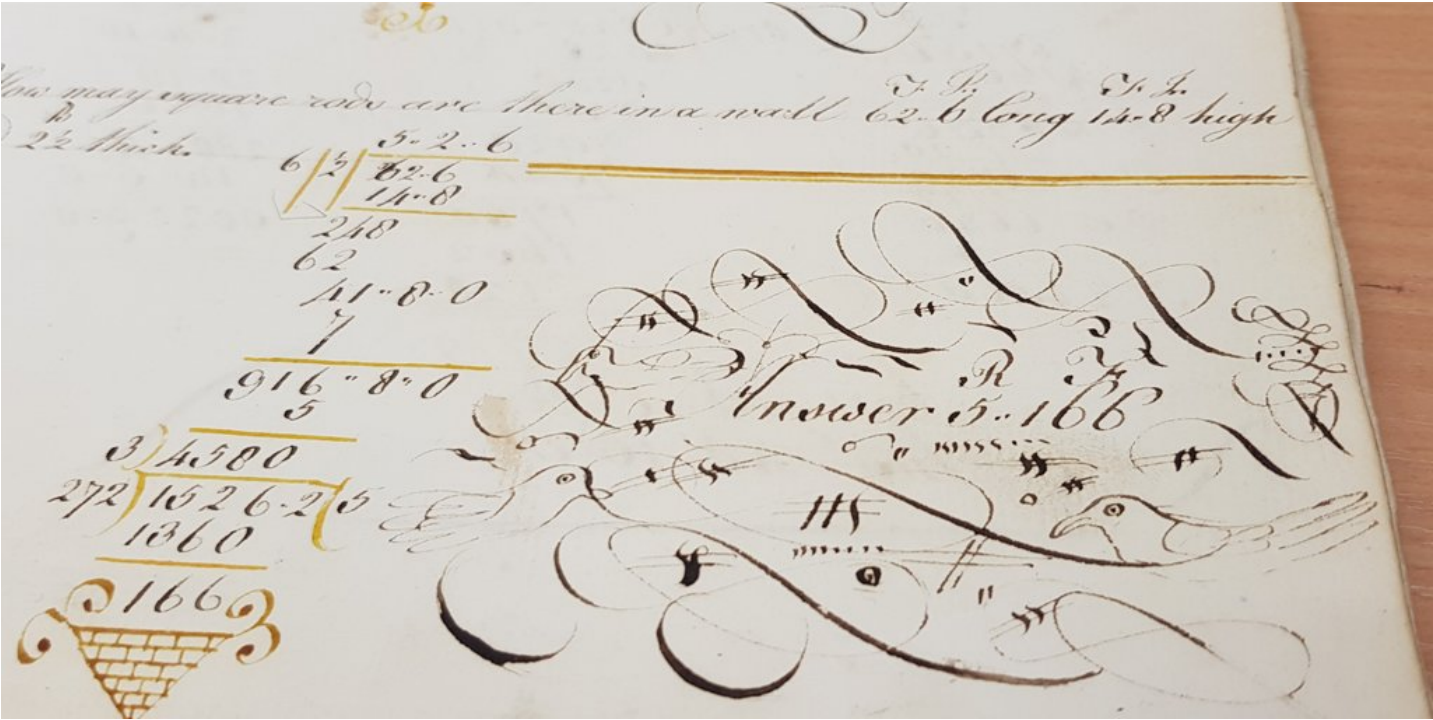 How may square rods are there in a wall 62-6 long 14-8 high
F. I. F. I.
B
2½ thick.
5-2-6
6 ½ 62-6
14-8
248
62
41-8-0
7
916-8-0
5
3)4580
272)1526-2(5
1360
166
R F
Answer 5-166